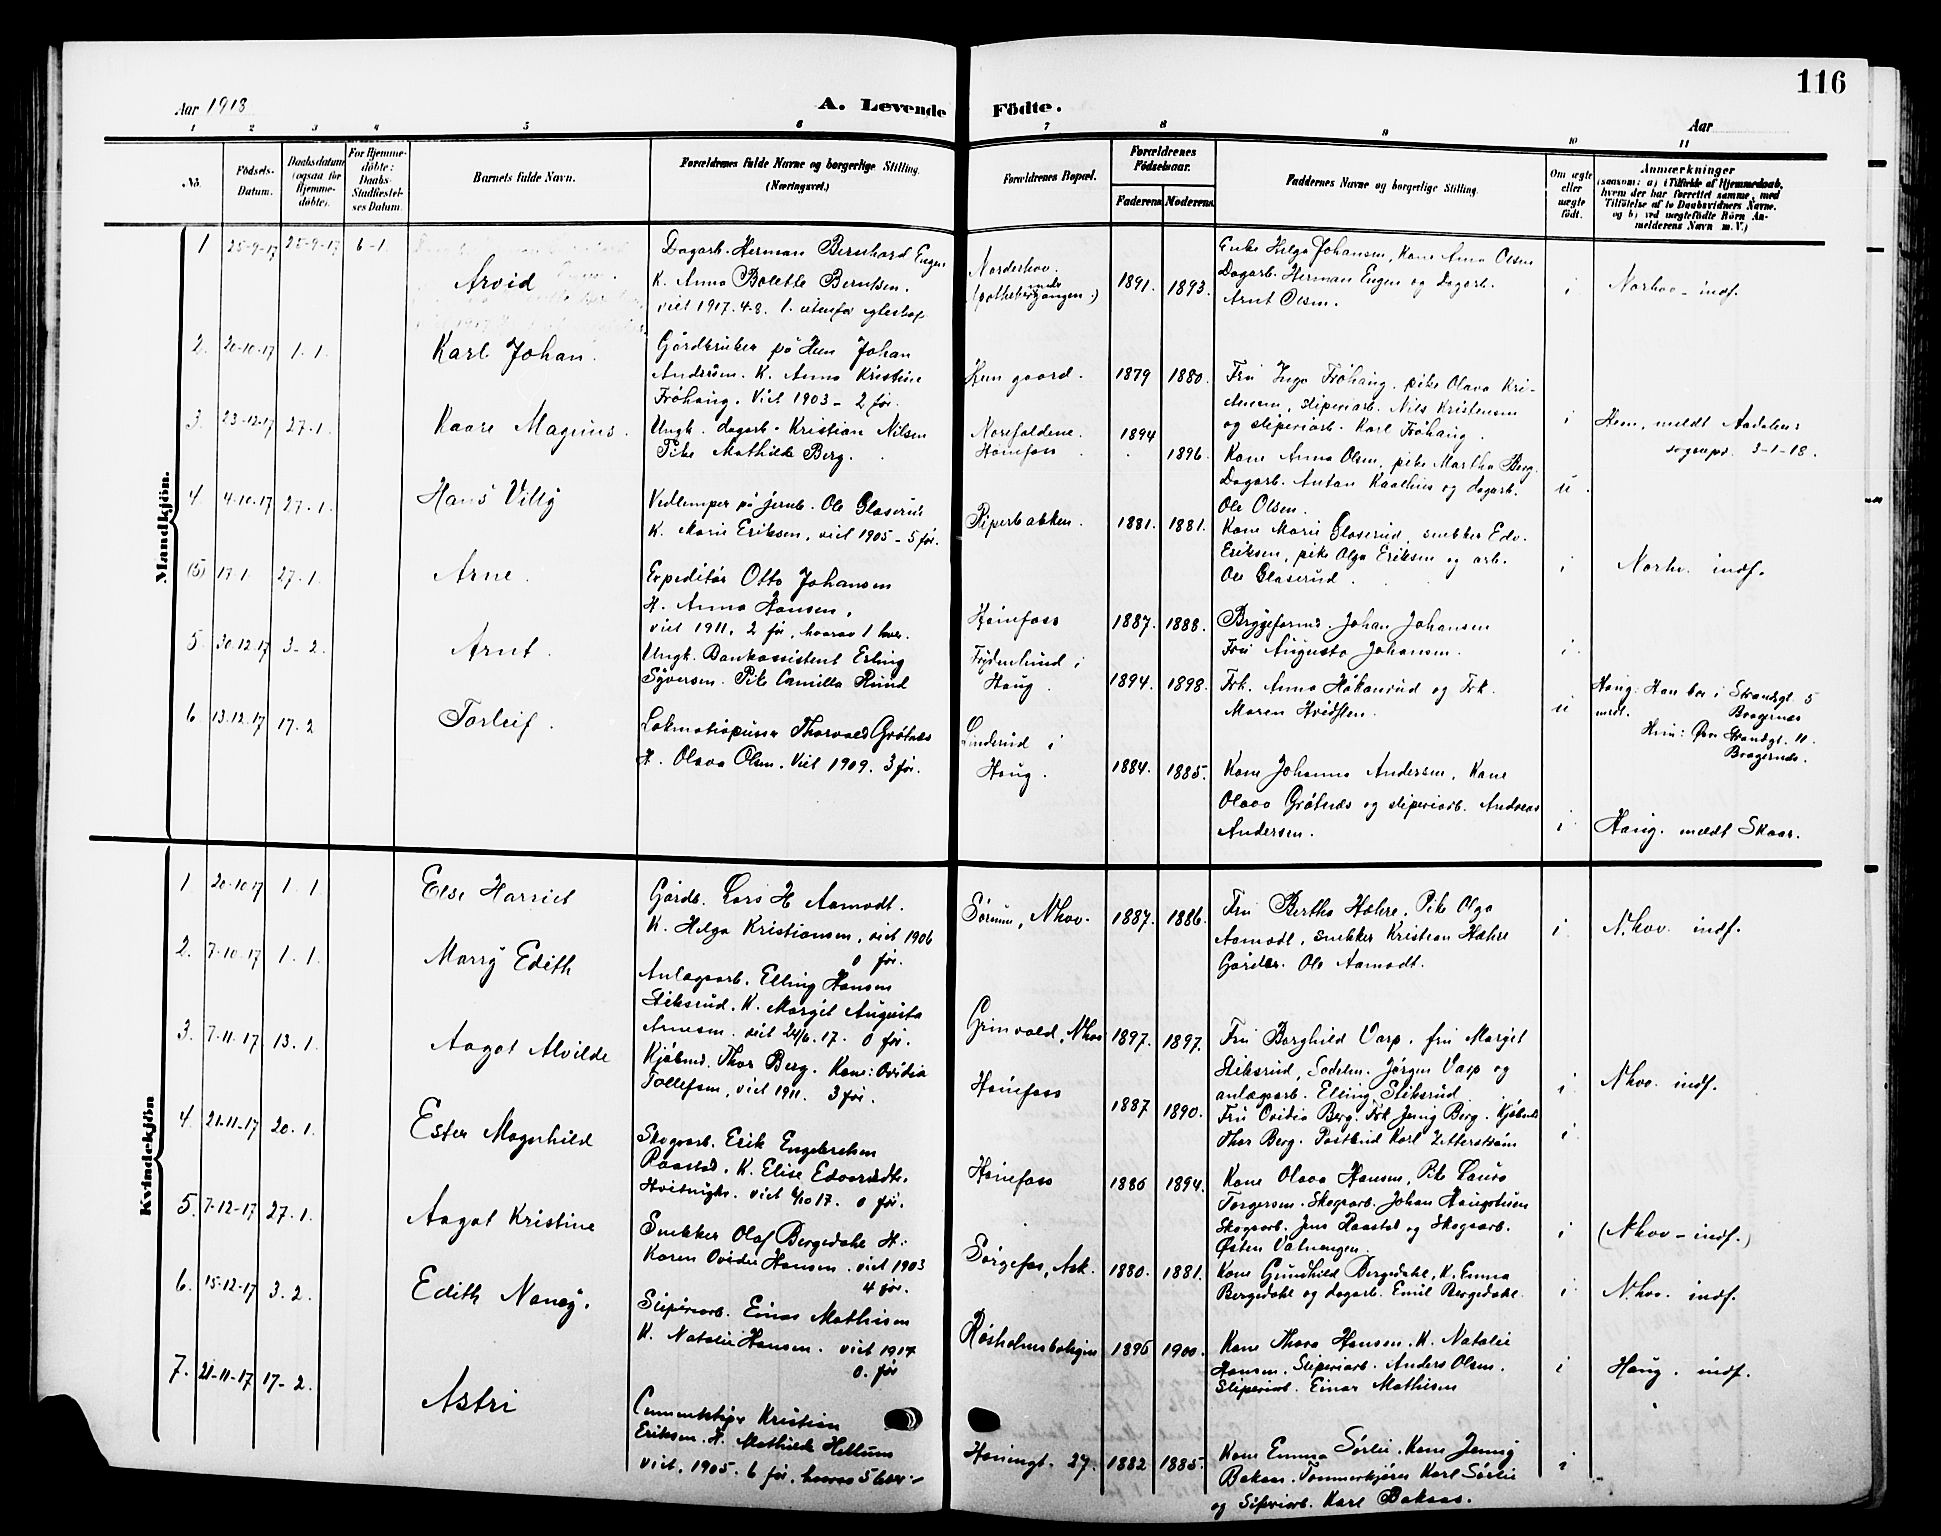 116
Aar 1918
A. Levende Födte.
Aar
1 2 3 4 5 6 7 8 9 10 11
No.
Födsels-Datum.
Daabsdatum (ogsaa for Hjemmedöbte).
For Hjemmedöbte: Daabs-Stadfæstelses Datum.
Barnets fulde Navn.
Forældrenes fulde Navne og borgerlige Stilling. (Næringsvei.)
Forældrenes Bopæl.
Forældrenes Födselsaar.
Faderens
Moderens
Faddernes Navne og borgerlige Stilling.
Om ægte eller uægte födt.
Anmærkninger
(saasom: a) i Tilfælde af Hjemmedaab, hvem der har forrettet samme, med Tilföielse af to Daabsvidners Navne. og b) ved uægtefödte Börn Anmelderens Navn m. V.)
Mandkjön.
1 25-9-17 25-9-17 6-1 Arvid
Dagarb. Herman Bernhard Eugen
K. Anna Bolette Berntsen.
viet 1917. 4-8. 1. utenfor egteskap
Norderhov.
1891. 1893.
Enke Helga Johansen, Kone Anna Olsen
Dagarb. Herman Eugen og Dagarb.
Arnt Olsen.
i Norhov - indf.
2. 20-10-17 1.1. Karl Johan.
Gårdbruker på Hen Johan
Andersen. K. Anna Kristine
Frøhaug. Viet 1903 - 2 før.
Hen gaard. 1879 1880.
Fru Inga Frøhaug. pike Olava Kri-
stensen, sliperiarb. Nils Kristensen
og sliperiarb. Karl Frøhaug.
i Hen, meldt Aadalens
sognepr. 3-1-18.
3. 23-12-17 27-1. Kaare Magnus.
Ungk. dagarb. Kristian Nilsen
Pike Mathilde Berg.
Hønefoss 1894 1896.
Kone Anna Olsen, pike Martha Berg.
Dagarb. Antan Kaalhus og dagarb.
Ole Olsen.
u.
4 4-10-17 27-1. Hans Villy
Vedlemper på jernb. Ole Glaserud
K. Marie Eriksen, viet 1905 - 5 før.
Piperbakken. 1881. 1881.
Kone Marie Glaserud, snekker Edv.
Eriksen, pike Olga Eriksen og arb.
Ole Glaserud.
i Norhv. indf.
(5) 17-1. 27-1. Arne.
Expeditør Otto Johansen
H. Anna Hansen,
viet 1911. 2 før, hvorav 1 lever.
Hønefoss 1887. 1888.
Bryggeformd. Johan Johansen
Fru Augusta Johansen.
i.
5. 30-12-17 3-2. Arnt.
Ungk. Bankassistent Erling
Syversen. Pike Camilla Rund
Frydenlund i
Haug. 1894. 1898.
Frk. Anna Håkenrud og Frk.
Maren Hvidsten.
u
Haug. Han bor i Strandgt. 5
Bragernes
Hun: Øvre Strandgt. 11.
Bragernes.
6. 13.12.17 17.2 Torleif.
Lokmotivpusser Thorvald Grøtnæs
H. Olava Olsen. Viet 1909. 3 før.
Linderud i
Haug. 1884. 1885.
Kone Johanna Andersen, Kone
Olava Grøtnæs og sliperiarb. Andreas
Andersen.
i Haug. meldt Skaar.
Kvindekjön
1 20-10-17 1.1 Else Harriet
Gårdb. Lars H Aamodt.
K. Helga Kristiansen, viet 1906
0 før.
Sørum, Nhov. 1887. 1886.
Fru Bertha Hæhre, Pike Olga
Aamodt, snekker Kristian Hæhre
Gårdbr. Ole Aamodt.
i. N.hov. indf.
2. 7-10-17 1.1. Marry Edith
Anlægsarb. Elling Hansen
Stiksrud. K. Margit Augusta
Arnesen. viet 24/6. 17. 0 før.
Grinvold, Nhov 1897. 1897.
Fru Borghild Varp, fru Margit
Stiksrud, Sadelm. Jørgen Varp og
anlægsarb. Elling Stiksrud.
i Nhov. indf.
3. 7-11-17 13.1. Aagot Alvilde
Kjøbmd. Thor Berg. Kone: Ovidia
Tollefsen, viet 1911. 3 før.
Hønefoss 1887 1890.
Fru Ovidia Berg. Frk Jenny Berg. Kjøbmd
Thor Berg. Postbud Karl Zetterstrøm
i.
4. 21-11-17 20.1. Ester Magnhild
Skogsarb. Erik Engebretsen
Raastad, K. Elise Edvardsdtr.
viet 6/10 17. 0 før.
Hønefoss 1886 1894.
Kone Olava Hansen, Pike Laura
Torgersen. Skogsarb. Johan Haugstuen
Skogsarb. Jens Raastad og Skogsarb.
Østen Vatnengen.
i (Nhov - indf.)
5. 7-12-17 27.1. Aagot Kristine
Snekker Olaf Bergedahl H.
Karen Ovidie Hansen. viet 1903
4 før.
Sørgefos, Ask. 1880. 1881.
Kone Gundhild Bergedahl, K. Emma
Bergedahl og dagarb. Emil Bergedahl.
i. N.hov. indf.
6. 15-12-17 3.2. Edith Nancy.
Sliperiarb. Einar Mathisen
K. Natalie Hansen. viet 1917
0. før
1896 1900.
Kone Thora Hansen. K. Natalie
Hansen, Sliperiarb. Anders Olsen.
Sliperiarb. Einar Mathisen
i Haug. indf.
7. 21-11-17 17-2. Astri
Kristian
Eriksen. H. Mathilde Hellum
viet. 1905. 6 før, hvorav 5 lever.
Hønengt. 27. 1882 1885.
Kone Emma Sørlie, Kone Jenny
Baksas. Tømmerkjører Karl Sørlie
og Sliperiarb. Karl Baksas.
i